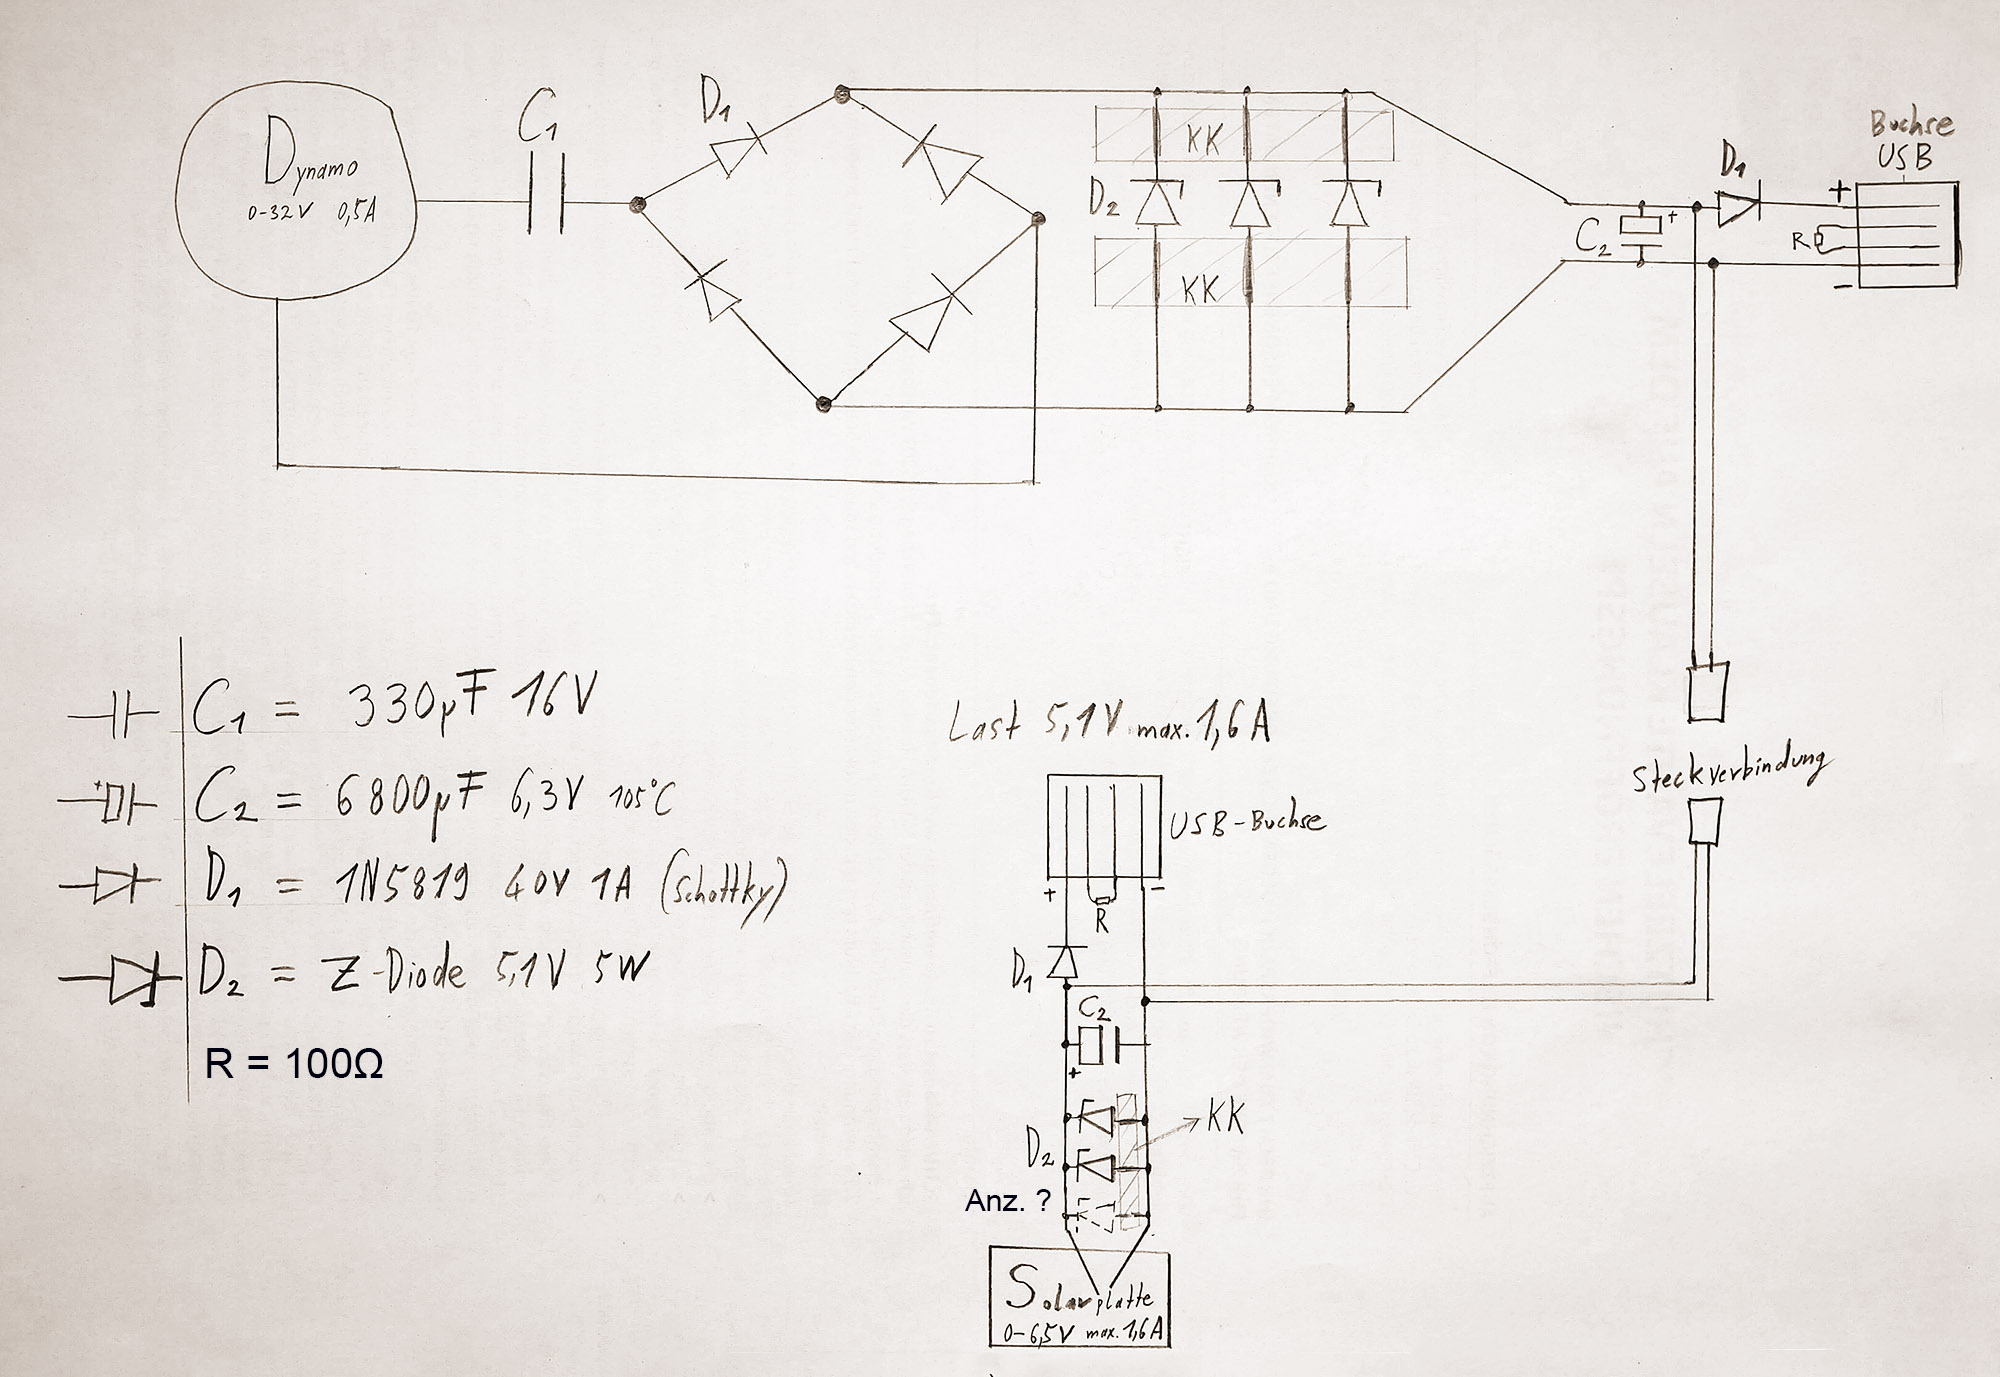 Dynamo
0-32V 0,5A
C1
D1
KK
D2
KK
C2
+
D1
Buchse
USB
+
R
-
C1 = 330µF 16V
C2 = 6800µF 6,3V 105°C
D1 = 1N5819 40V 1A (Schottky)
D2 = Z-Diode 5,1V 5W
R = 100Ω
Steckverbindung
Last 5,1V max. 1,6A
USB-Buchse
+
-
R
D1
C2
+
KK
D2
Anz. ?
Solarplatte
0-6,5V max. 1,6A